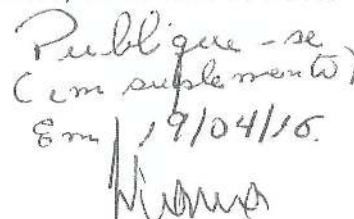 Publique-se
(em suplemento)
Em, 19/04/16.